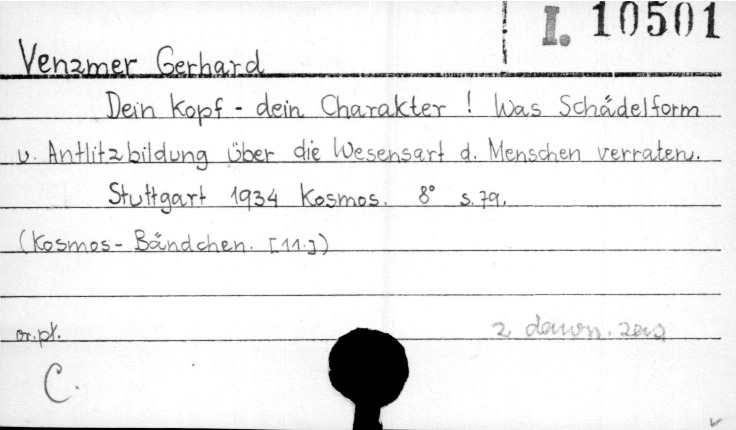 I. 10501
Venzmer Gerhard
Dein Kopf - dein Charakter ! Was Schädelform
u. Antlitzbildung über die Wesensart d. Menschen verraten.
Stuttgart 1934 Kosmos. 8° s. 79.
(Kosmos - Bändchen. [11.])
or. pł.
z dawn. zas
C.